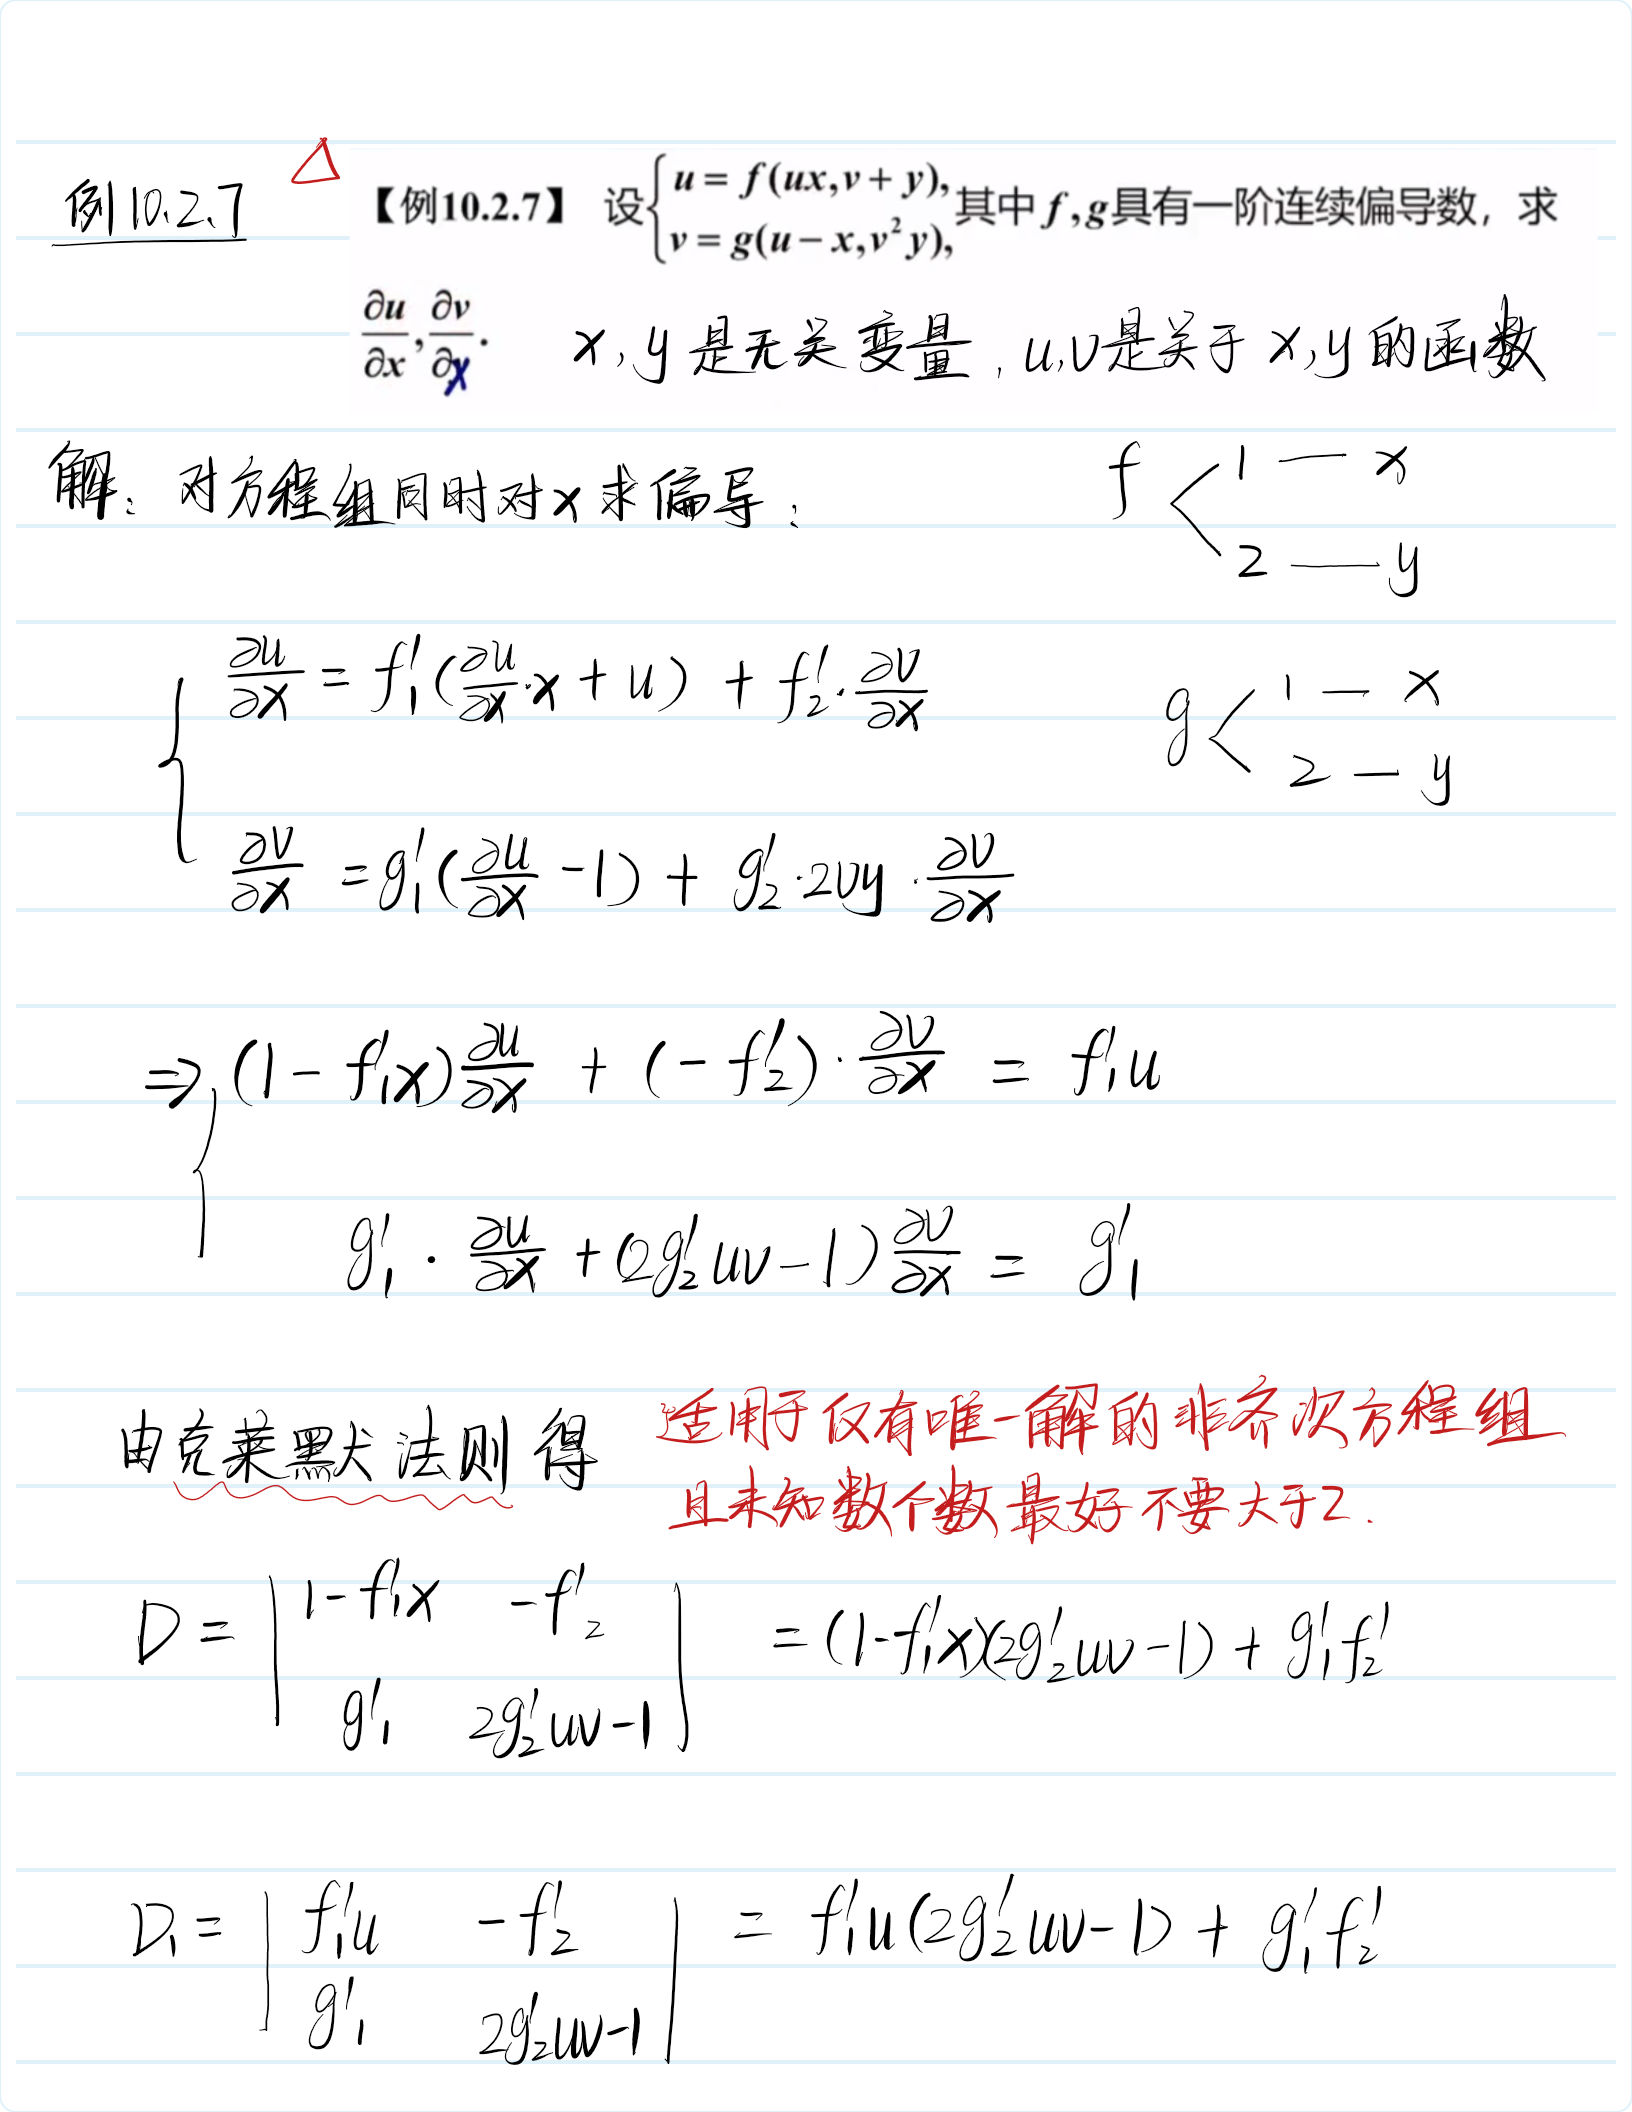 例10.2.7 △ 【例10.2.7】 设{u = f(ux, v + y), v = g(u − x, v²y), 其中 f, g具有一阶连续偏导数，求
∂u/∂x, ∂v/∂x. x, y 是无关变量，u, v是关于 x, y 的函数
解：对方程组同时对x求偏导：
f < 1 — x
2 — y
∂u/∂x = f₁′(∂u/∂x·x + u) + f₂′·∂v/∂x
g < 1 — x
2 — y
∂v/∂x = g₁′(∂u/∂x − 1) + g₂′·2vy·∂v/∂x
⇒ { (1 − f₁′x)∂u/∂x + (−f₂′)·∂v/∂x = f₁′u
g₁′·∂u/∂x + (2g₂′uv − 1)∂v/∂x = g₁′
由克莱默法则得 适用于仅有唯一解的非齐次方程组
且未知数个数最好不要大于2.
D = | 1−f₁′x −f₂′ | = (1−f₁′x)(2g₂′uv−1) + g₁′f₂′
g₁′ 2g₂′uv−1
D₁ = | f₁′u −f₂′ | = f₁′u(2g₂′uv−1) + g₁′f₂′
g₁′ 2g₂′uv−1